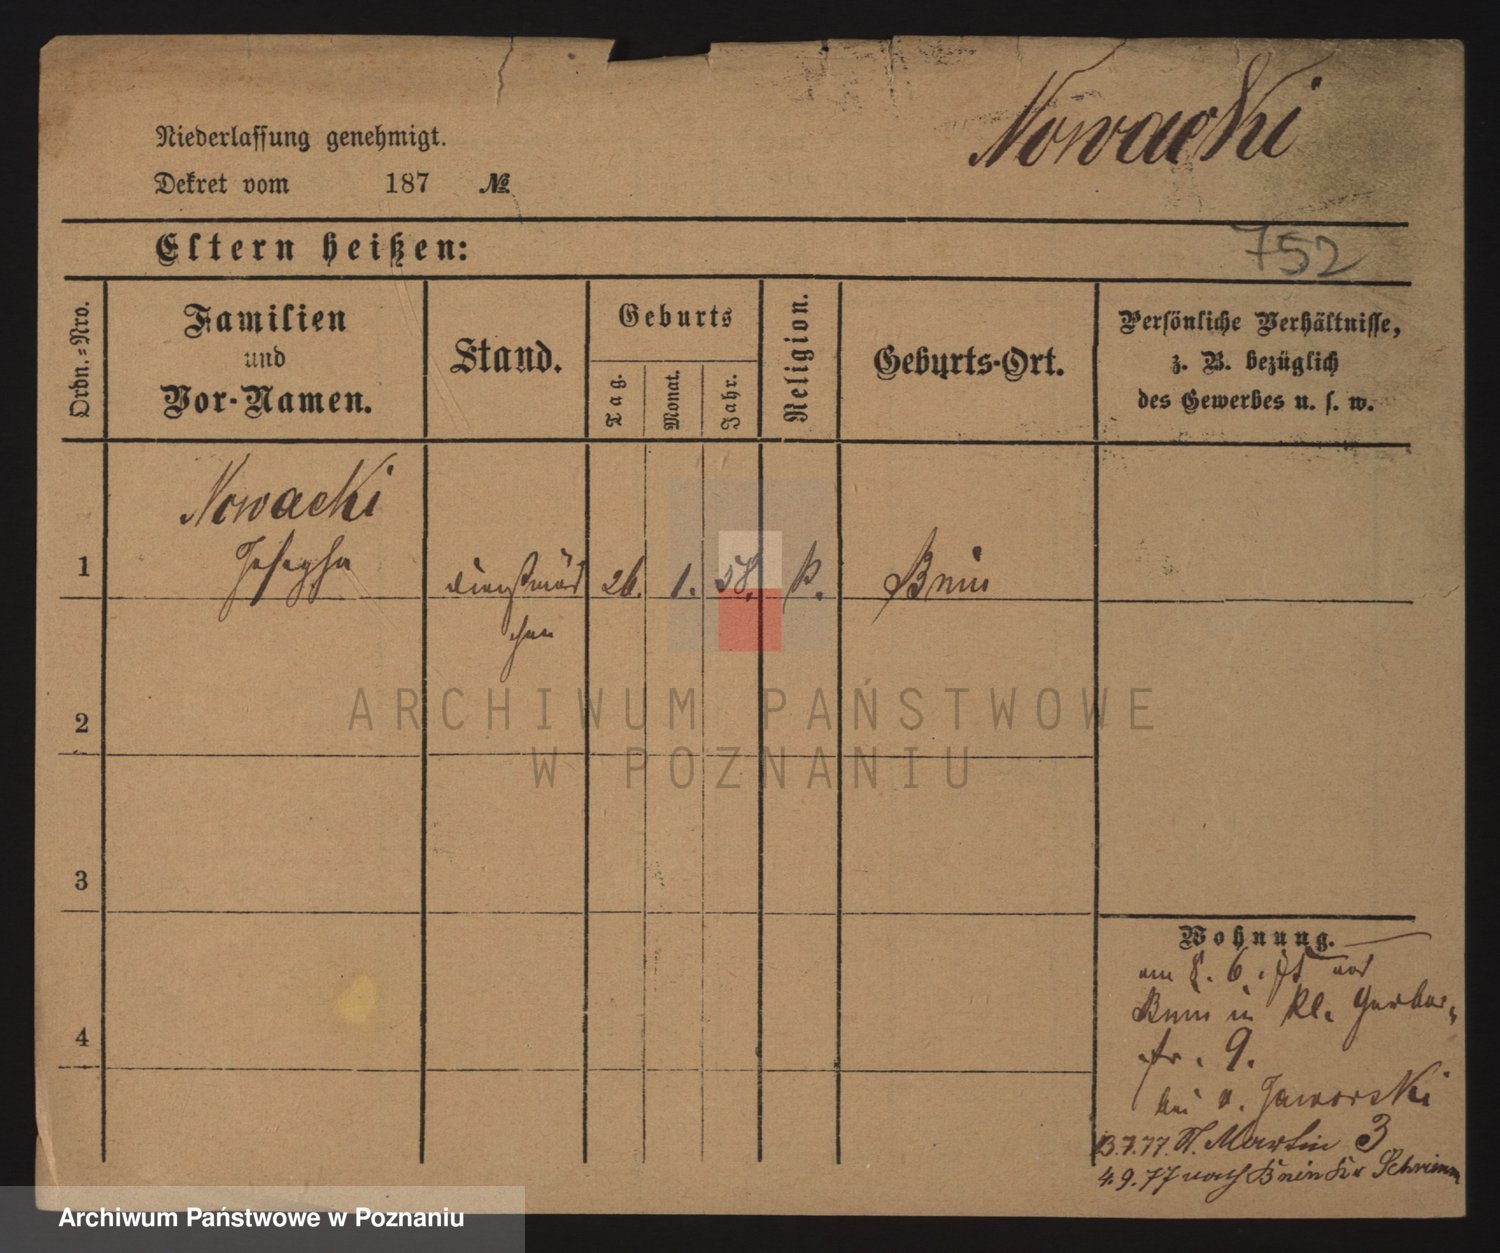 Nowacki
Niederlassung genehmigt.
Dekret vom 187 №
Eltern heißen:
752
Ordn.=Nro.
Familien
und
Vor-Namen.
Stand.
Geburts
Tag.
Monat.
Jahr.
Religion.
Geburts-Ort.
Persönliche Verhältnisse,
z. B. bezüglich
des Gewerbes u. s. w.
Nowacki
1 Josepha Dienstmäd 26. 1. 58. k. Bnin
chen
2
3
4
Wohnung.
am 8. 6. aus
Bnin in kl. Gerber-
str. 9.
bei v. Jaworski
13.7.77. St. Martin 3
4.9.77 nach Bnin Kr Schrimm
ARCHIWUM PAŃSTWOWE
W POZNANIU
Archiwum Państwowe w Poznaniu